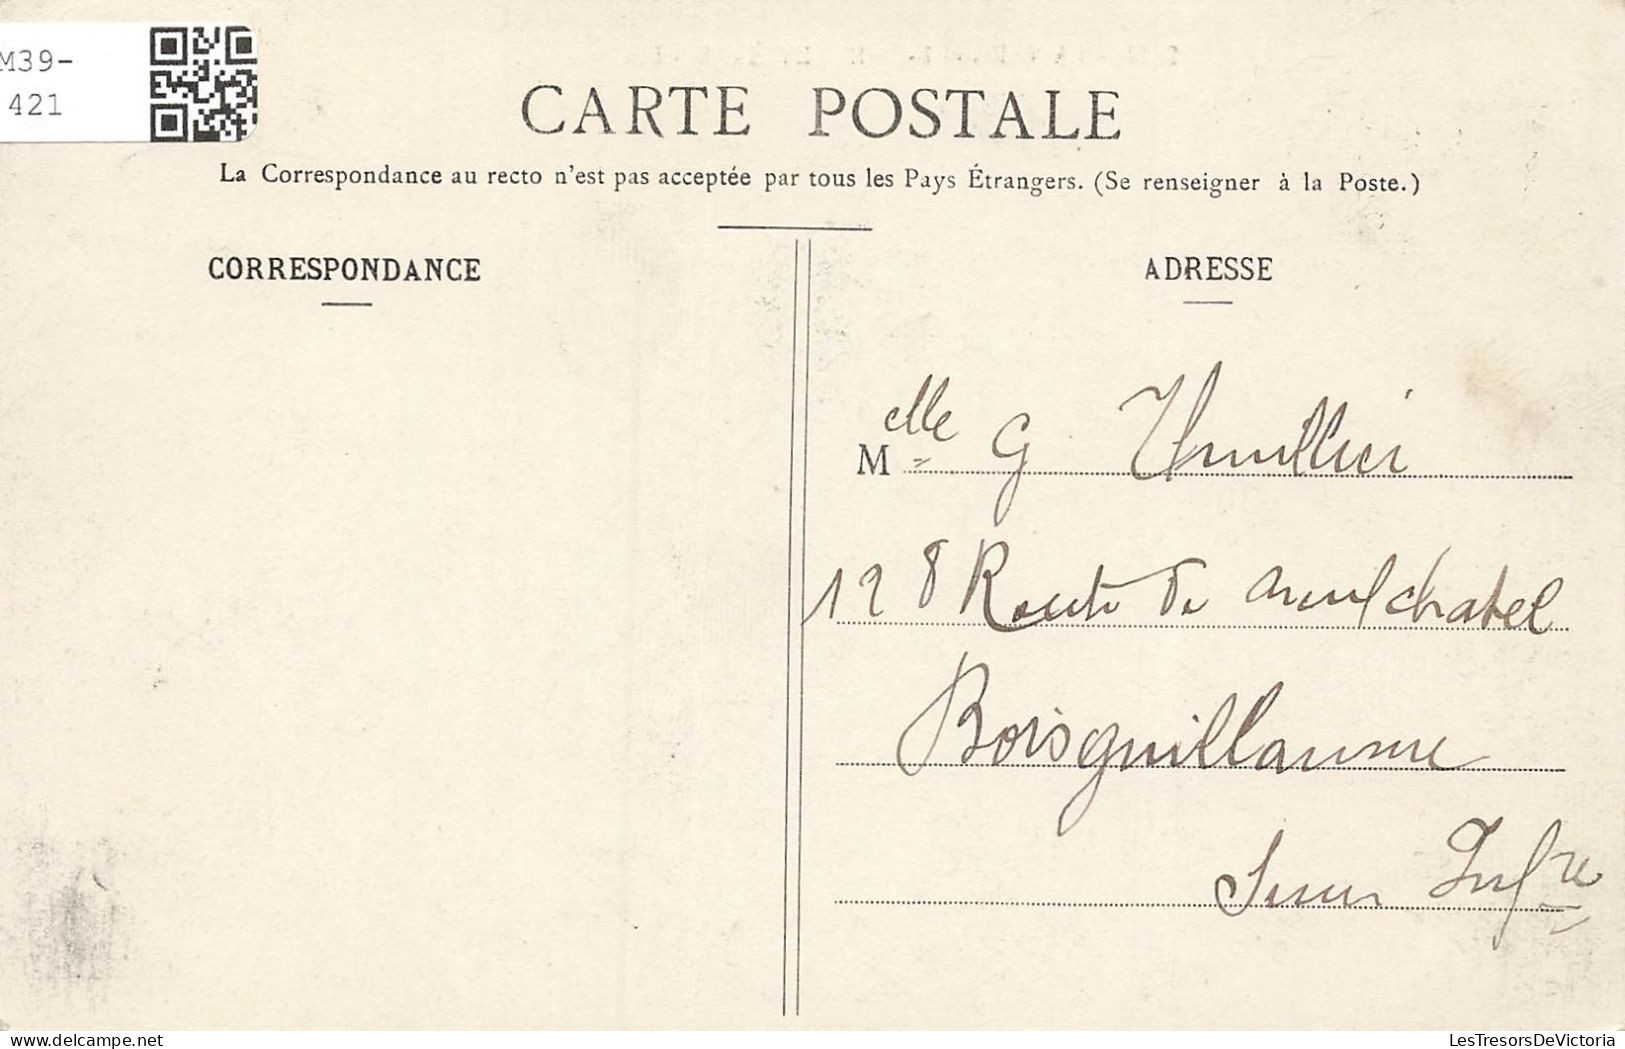 M39-
421
CARTE POSTALE
La Correspondance au recto n'est pas acceptée par tous les Pays Étrangers. (Se renseigner à la Poste.)
CORRESPONDANCE
ADRESSE
Melle G
128 Route de Neufchatel
Boisguillaume
Seine Infre
LesTresorsDeVictoria
delcampe.net